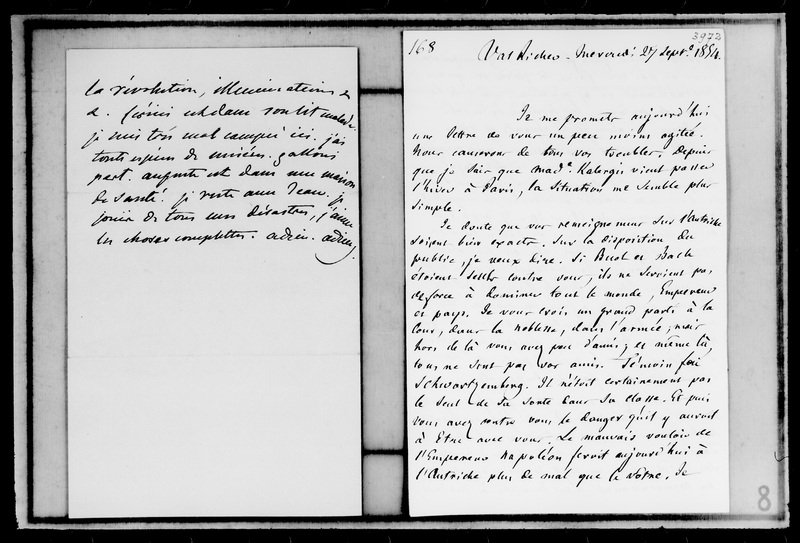 la révolution, illuminations &
&. Créini est dans son lit malade.
je suis très mal campée ici. j'ai
toutes espèces de misères. gallois
part. auguste est dans une maison
de santé. je reste avec Jean. je
jouis de tous mes désastres, j'aime
les choses complettes. adieu. adieu.
168
3972
Val Richer - Mercredi 27 Septe 1854.
Je me promets aujourd'hui
une lettre de vous un peu moins agitée.
Nous causerons de tous vos troubles. Depuis
que je sais que made Kalergis vient passer
l'hiver à Paris, la situation me semble plus
simple.
Je doute que vos renseignemens sur l'Autriche
soient bien exacts. Sur la disposition du
public, je veux dire. Si Buol et Bach
étoient seuls contre vous, ils ne seroient pas
de force à dominer tout le monde, Empereur
et pays. Je vous crois un grand parti à la
Cour, dans la noblesse, dans l'armée; mais
hors de là vous avez peu d'amis; et même là,
tous ne sont pas vos amis. Témoin feu
Schwartzemberg. Il n'étoit certainement pas
le seul de sa sorte dans sa classe. Et puis
vous avez contre vous le danger qu'il y auroit
à être avec vous. Le mauvais vouloir de
l'Empereur Napoléon feroit aujourd'hui à
l'Autriche plus de mal que le vôtre. Je
8